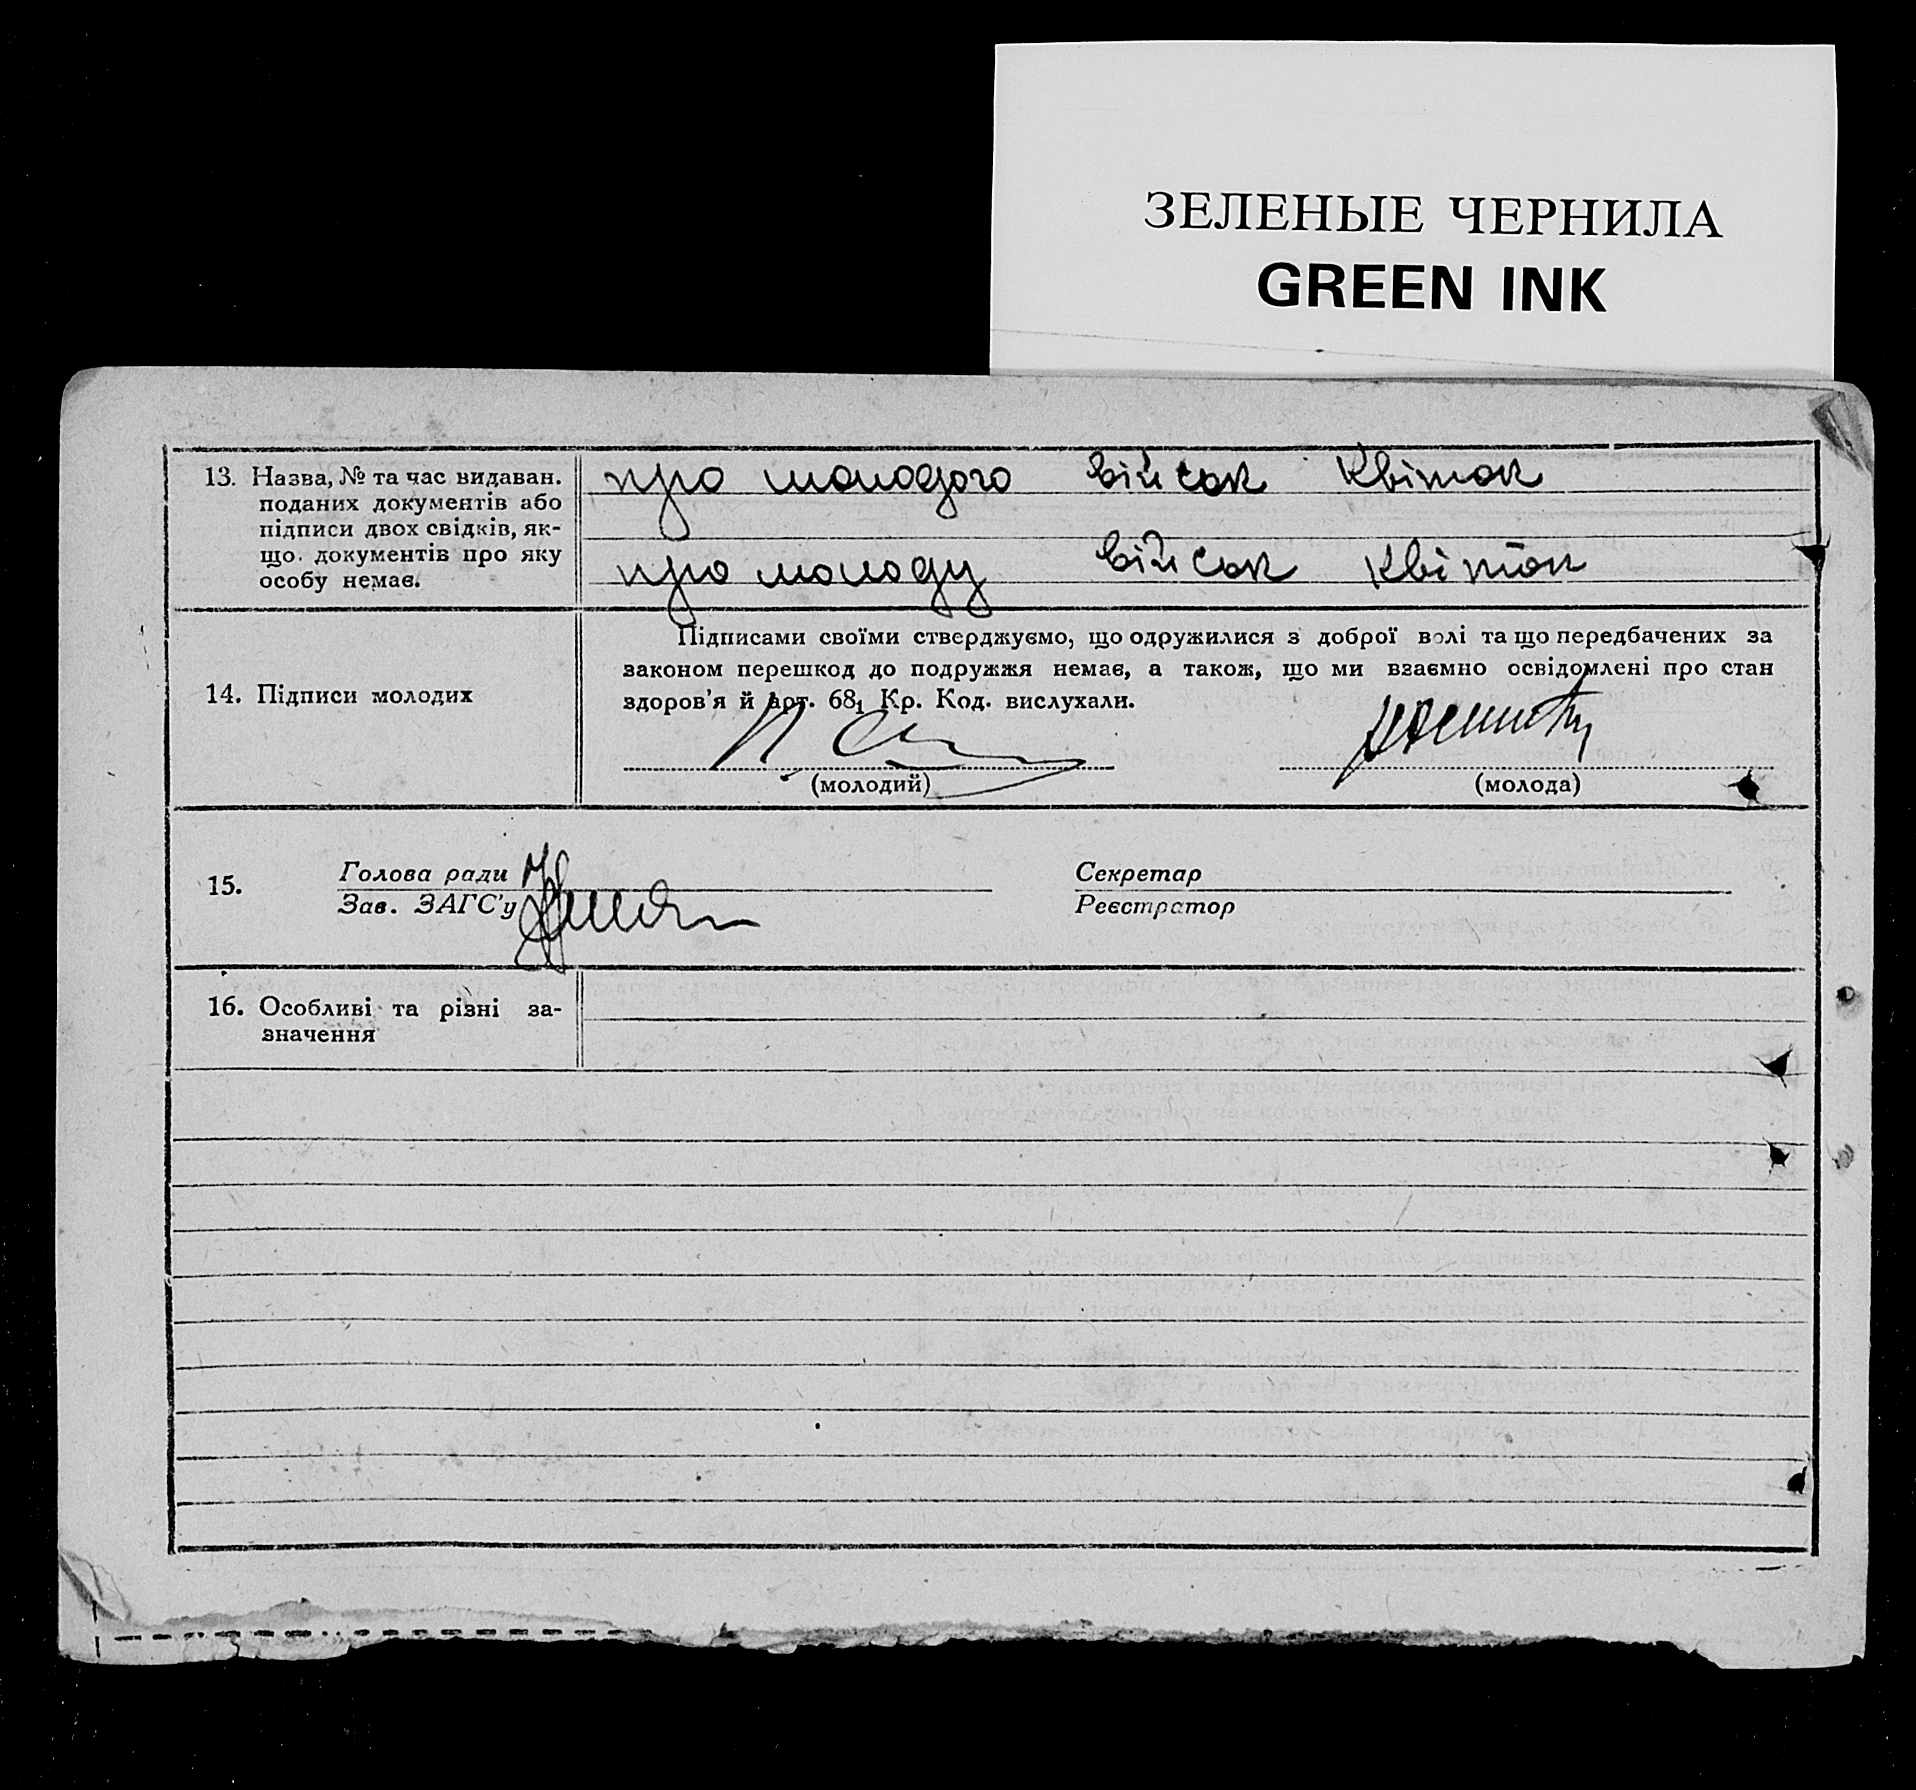 ЗЕЛЕНЫЕ ЧЕРНИЛА
GREEN INK
13. Назва, № та час видаван.
поданих документів або
підписи двох свідків, як-
що. документів про яку
особу немає.
про молодого війсък Квіток
про молоду війсък квіток
14. Підписи молодих
Підписами своїми стверджуємо, що одружилися з доброї волі та що передбачених за
законом перешкод до подружжя немає, а також, що ми взаємно освідомлені про стан
здоров'я й арт. 68₁ Кр. Код. вислухали.
(молодий)
(молода)
15.
Голова ради
Зав. ЗАГС'у
Секретар
Реєстратор
16. Особливі та різні за-
значення